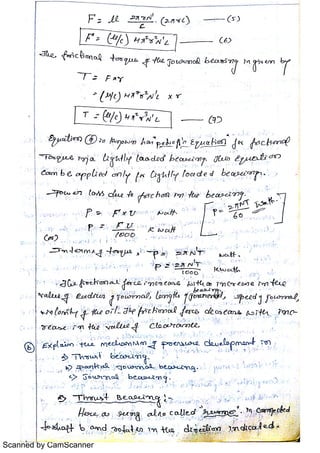 F = μ 2πrN'/c (2πrL) —— (5)
F = (μ/c) 4π²r²N'L —— (6)
The frictional torque of the Journal bearing is given by
T = F×r
= (μ/c) 4π²r²N'L × r
T = (μ/c) 4π²r³N'L —— (7)
Equation (7) is known has Petroff's Equation for frictional
Torque in a lightly loaded bearing. This equation
can be applied only for lightly loaded bearing.
Power loss due to friction in the bearing.
P = F×U watt.
P = 2πNT/60 watt.
P = FU/1000 K watt
(or)
In terms of torque, P = 2πN'T watt.
P = 2πN'T/1000 Kwatt.
The frictional force increases with a increase in the
bearing
value of Radius of journal, length of journal, speed of journal,
viscosity of the oil. The frictional force decreases with inc-
rease in the value of clearance.
(b) Explain the mechanism of pressure development in
Thrust bearing.
Journal bearing.
3) Journal bearing.
Thrust Bearing :-
Here a ring also called runner is connected
to shaft b and rotates in the direction indicated.
Scanned by CamScanner